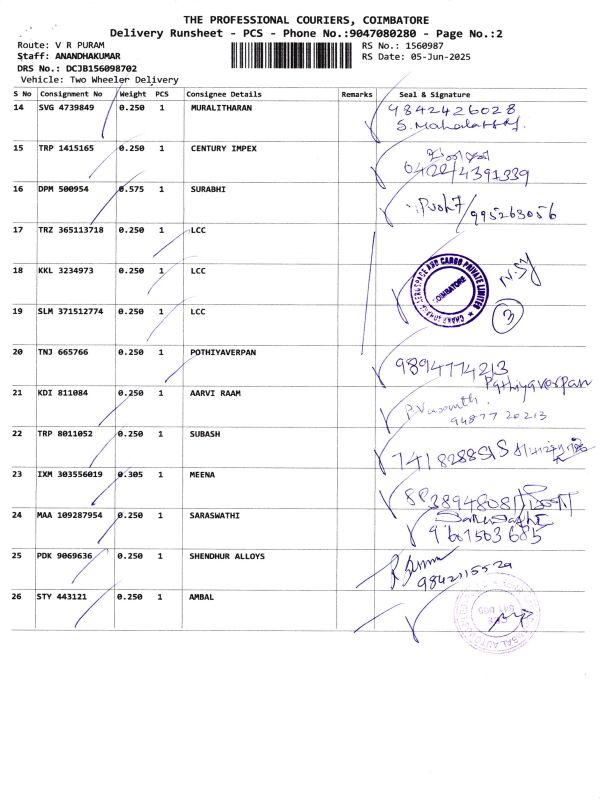 THE PROFESSIONAL COURIERS, COIMBATORE
Delivery Runsheet - PCS - Phone No.:9047080280 - Page No.:2
Route: V R PURAM
RS No.: 1560987
Staff: ANANDHAKUMAR
RS Date: 05-Jun-2025
DRS No.: DCJB156098702
Vehicle: Two Wheeler Delivery
S No Consignment No Weight PCS Consignee Details Remarks Seal & Signature
14 SVG 4739849 0.250 1 MURALITHARAN 9842426028
15 TRP 1415165 0.250 1 CENTURY IMPEX 0422/4391339
16 DPM 500954 0.575 1 SURABHI /995263056
17 TRZ 365113718 0.250 1 LCC
18 KKL 3234973 0.250 1 LCC COIMBATORE
19 SLM 371512774 0.250 1 LCC 3
20 TNJ 665766 0.250 1 POTHIYAVERPAN 9894774213
Pathiyaverpan
21 KDI 811084 0.250 1 AARVI RAAM P. Vasanth.
94877 20213
22 TRP 8011052 0.250 1 SUBASH
23 IXM 303556019 0.305 1 MEENA
24 MAA 109287954 0.250 1 SARASWATHI
9601503685
25 PDK 9069636 0.250 1 SHENDHUR ALLOYS
9842115529
26 STY 443121 0.250 1 AMBAL